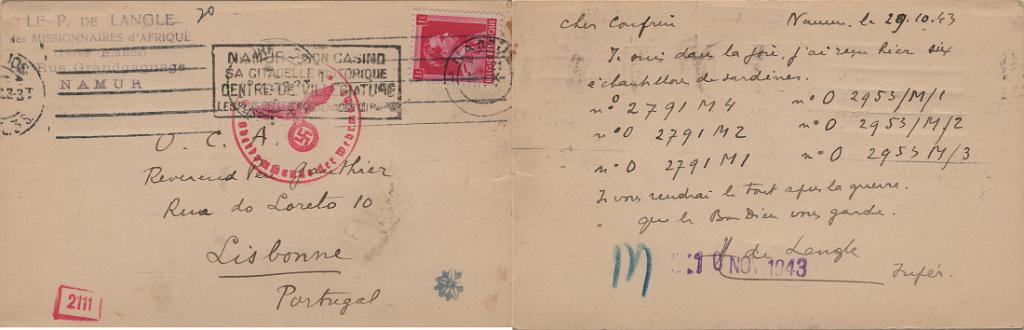 LE P. DE LANGLE
des MISSIONNAIRES D'AFRIQUE
(Pères Blancs)
Rue Grandgagnage
NAMUR
20
NAMUR SON CASINO
SA CITADELLE HISTORIQUE
CENTRE DE VILLÉGIATURE
NAMUR
BELGIQUE
Oberkommando der Wehrmacht
O. C. A.
Reverend Père Gauthier
Rua do Loreto 10
Lisbonne
Portugal
2111
Namur, le 29.10.43
Cher Confrère
Je suis dans la joie, j'ai reçu hier six
échantillons de sardines.
n° 2791 M4 n° O 2953/M/1
n° O 2791 M2 n° O 2953/M/2
n° O 2791 M1 n° O 2953 M/3
Je vous rendrai le tout après la guerre.
que le Bon Dieu vous garde.
M de Langle
Supér.
M
10 NOV. 1943